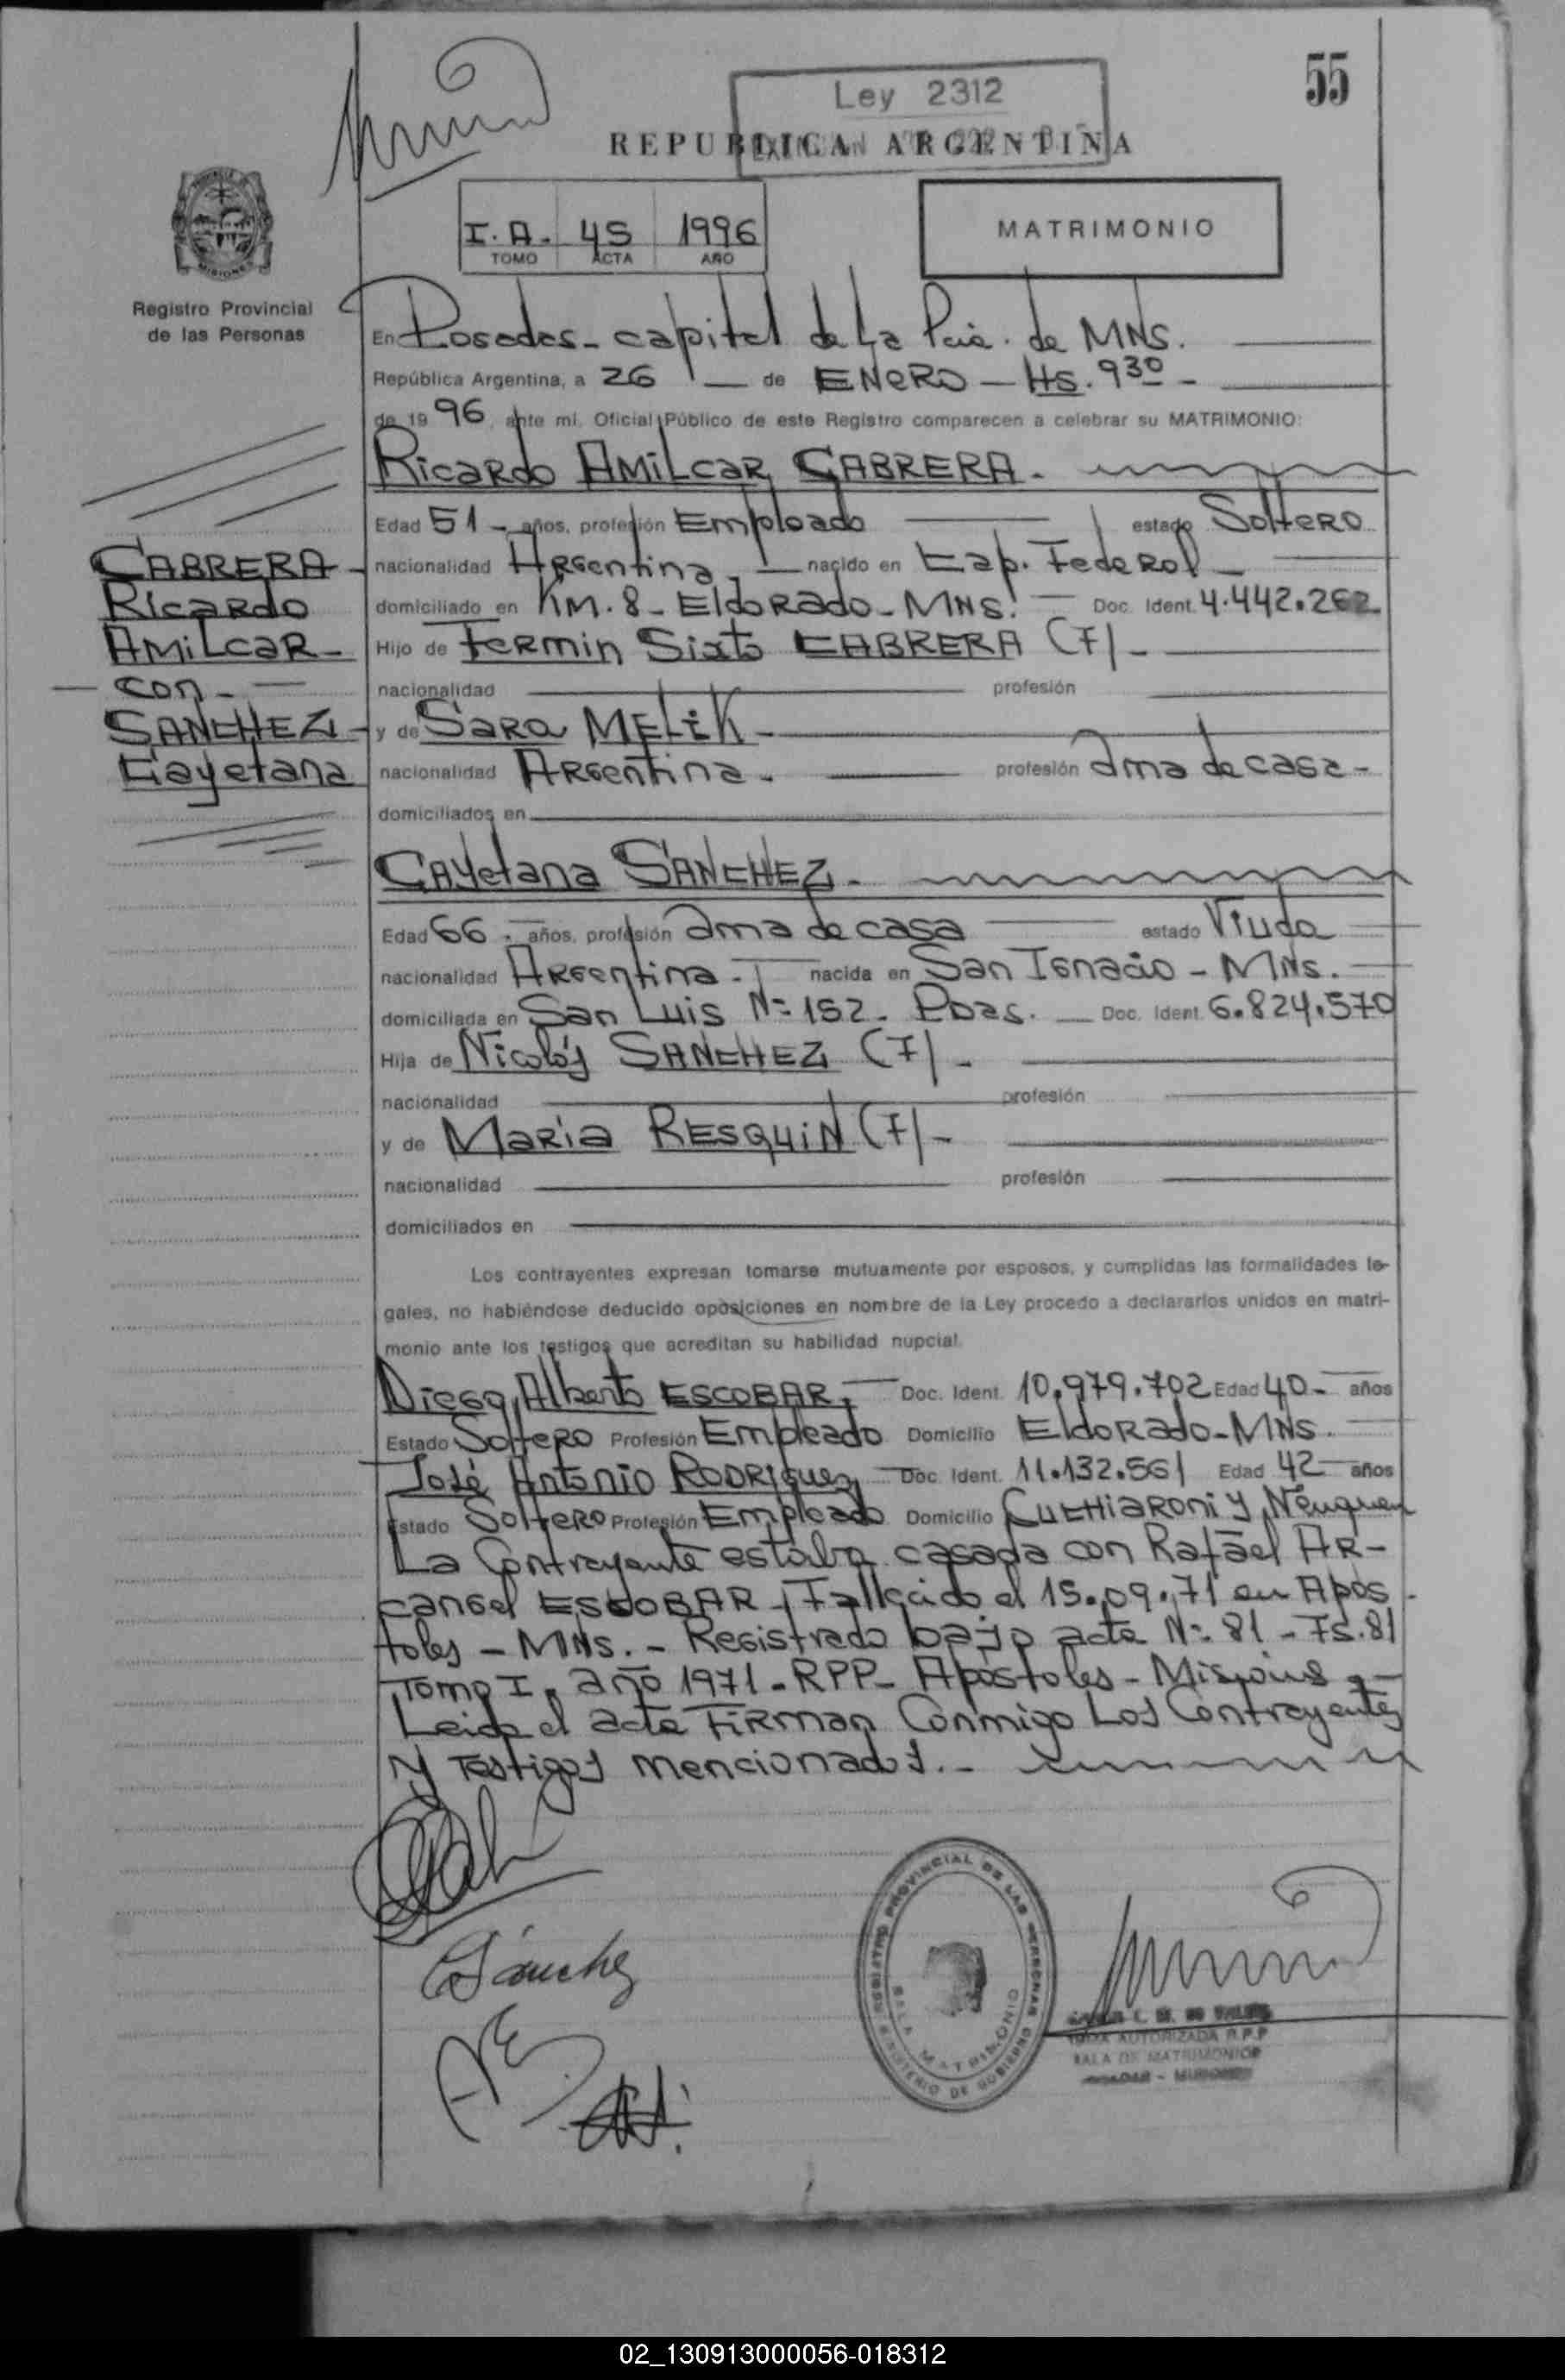 55
Ley 2312
REPUBLICA ARGENTINA
I.A. 45 1996
TOMO ACTA AÑO
MATRIMONIO
MISIONES
Registro Provincial
de las Personas
En Posadas - capital de la Pcia. de MNS.
República Argentina, a 26 de ENERO - Hs. 9 30 -
de 1996, ante mí, Oficial Público de este Registro comparecen a celebrar su MATRIMONIO:
Ricardo AMiLcar CABRERA.
Edad 51 - años, profesión Empleado estado Soltero
nacionalidad Argentina - nacido en Cap. Federal -
domiciliado en KM. 8 - Eldorado - MNS. Doc. Ident. 4.442.262
Hijo de Fermin Sixto CABRERA (F) -
nacionalidad profesión
y de Sara MELiK -
nacionalidad Argentina - profesión Ama de casa -
domiciliados en
CABRERA -
Ricardo
AMiLcar -
- con -
SANCHEZ -
Cayetana
Cayetana SANCHEZ -
Edad 66 . años, profesión Ama de casa estado Viuda
nacionalidad Argentina - nacida en San Ignacio - MNS.
domiciliada en San Luis Nº 152 - Pdas. - Doc. Ident. 6.824.570
Hija de Nicolás SANCHEZ (F) -
nacionalidad profesión
y de María RESQUiN (F) -
nacionalidad profesión
domiciliados en
Los contrayentes expresan tomarse mutuamente por esposos, y cumplidas las formalidades le-
gales, no habiéndose deducido oposiciones en nombre de la Ley procedo a declararlos unidos en matri-
monio ante los testigos que acreditan su habilidad nupcial.
Diego Alberto ESCOBAR, Doc. Ident. 10.979.702 Edad 40 - años
Estado Soltero Profesión Empleado Domicilio Eldorado - MNS.
José Antonio RODRiguez Doc. Ident. 11.132.561 Edad 42 años
Estado Soltero Profesión Empleado Domicilio Cuchiaroni y Neuquen
La Contrayente estaba casada con Rafael AR-
cangel ESCOBAR, Fallecido el 15.09.71 en Apos
toles - MNS. - Registrado bajo acta Nº 81 - Fs. 81
Tomo I, año 1971 - RPP - Apostoles - Misiones -
Leida el acta Firman Conmigo Los Contrayentes
y Testigos mencionados. -
CSánchez
REGISTRO PROVINCIAL DE LAS PERSONAS
SALA MATRIMONIO
MINISTERIO DE GOBIERNO
AUTORIZADA R.P.P
SALA DE MATRIMONIOS
02_130913000056-018312